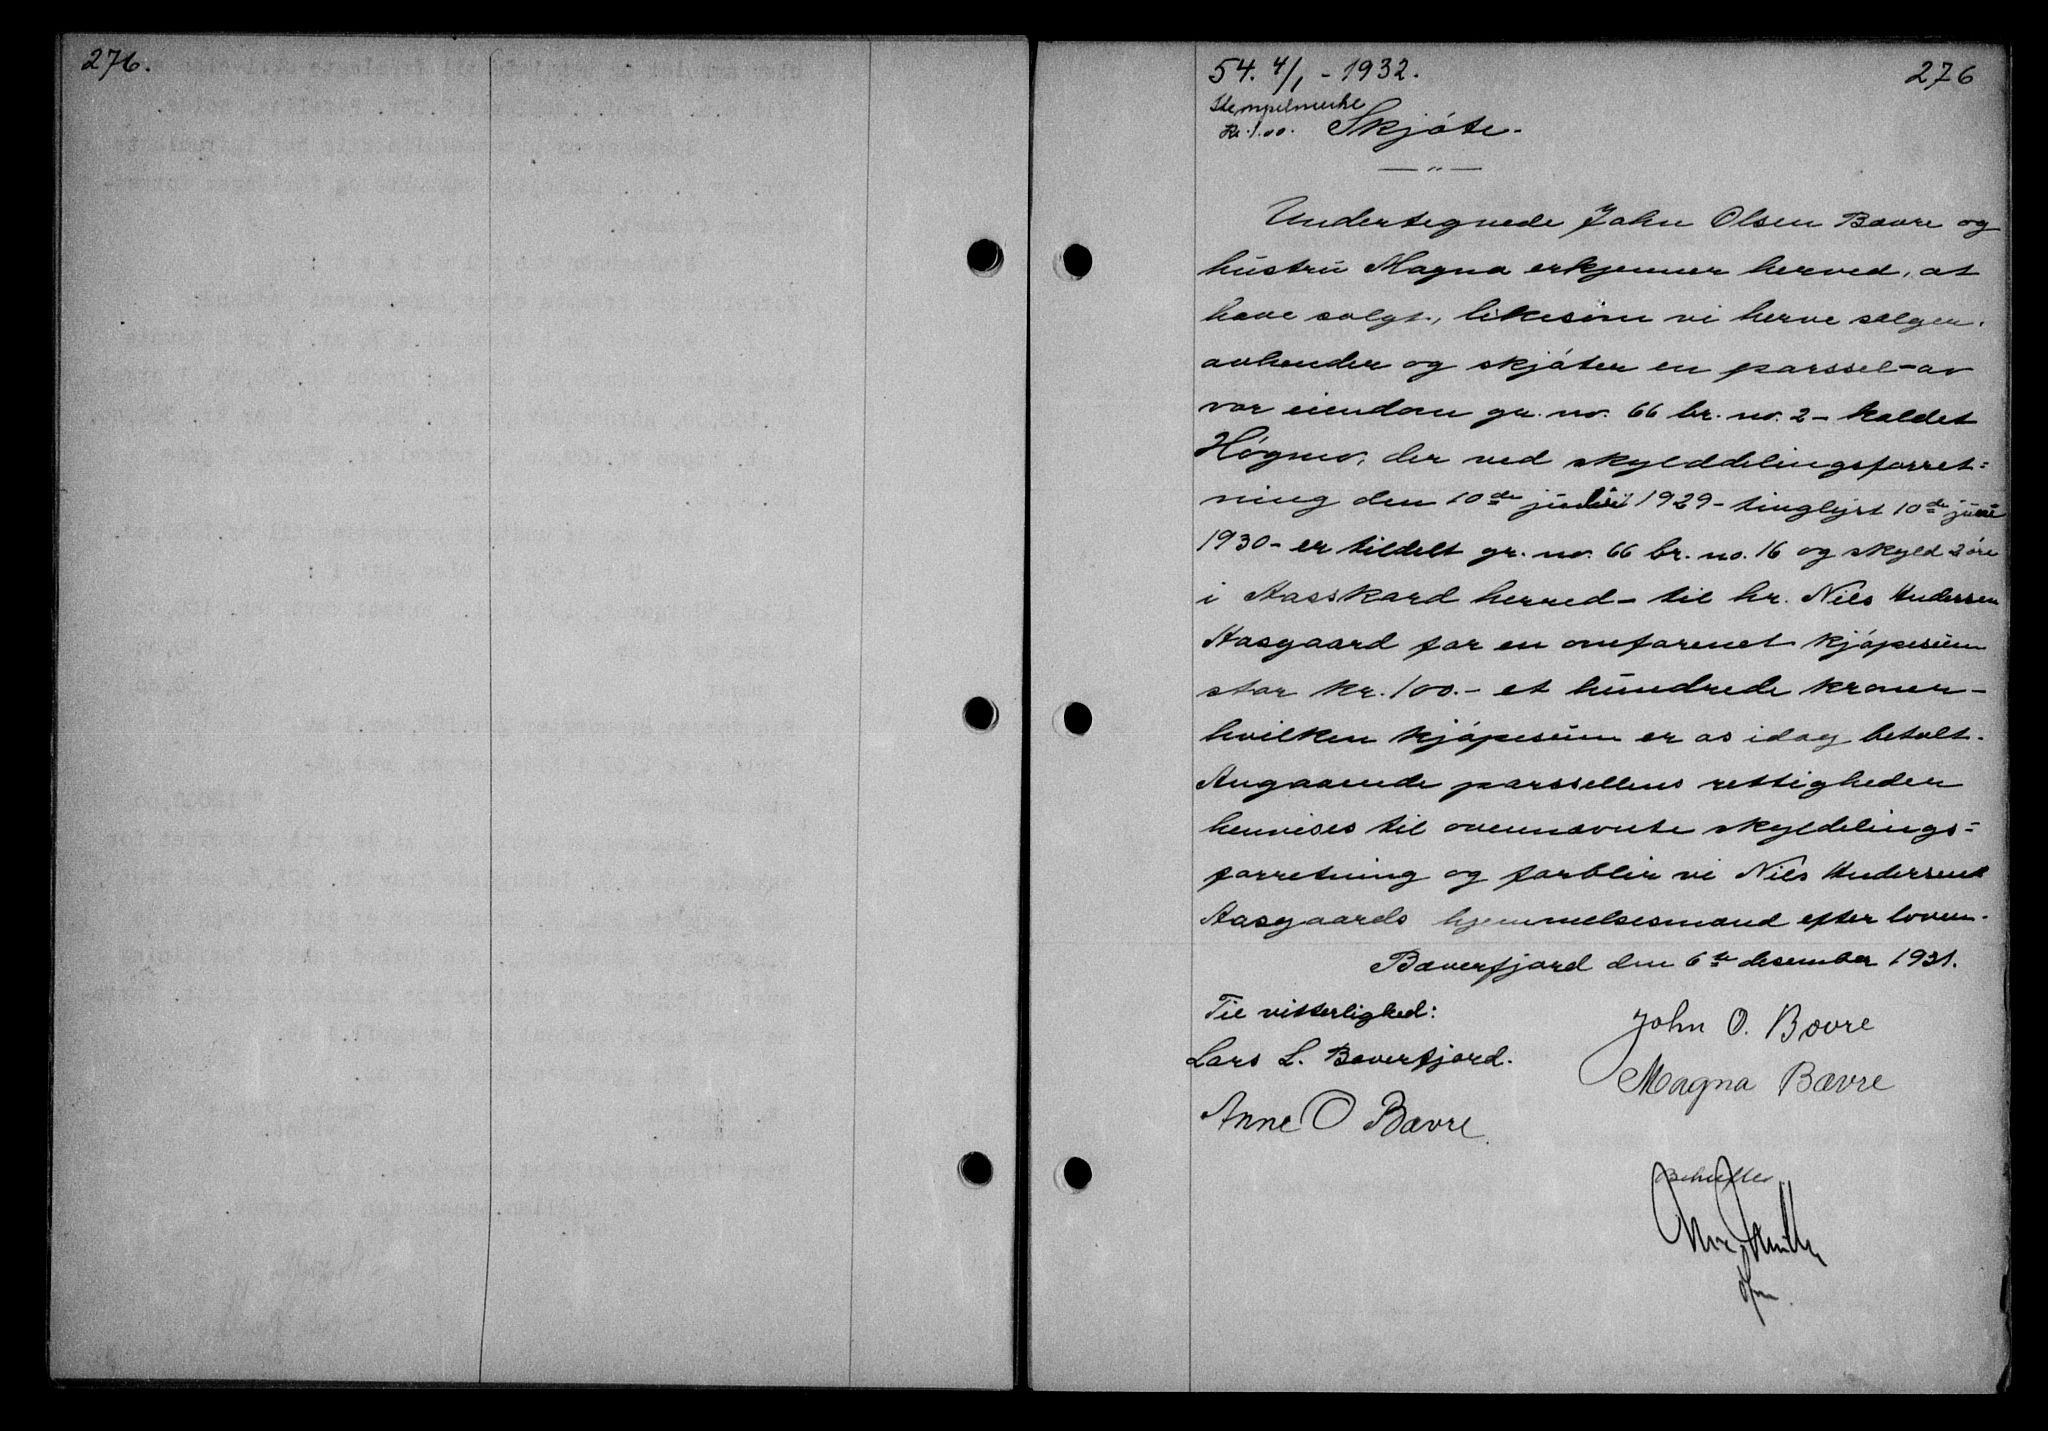 276.
54. 4/1 - 1932.
276
Stempelmerke
Kr. 1.00. Skjøte.
Undertegnede John Olsen Bævre og
hustru Magna erkjenner herved, at
have solgt, likesom vi herve sælger,
avhender og skjøter en parssel av
vor eiendom gr. no. 66 br. no. 2 - kaldet
Høgmo, der ved skylddelingsforret=
ning den 10de juni 1929 - tinglyst 10de juni
1930 - er tildelt gr. no. 66 br. no. 16 og skyld 2 øre
i Aasskard herred - til hr. Nils Andersen
Aasgaard for en omforenet kjøpesum
stor kr. 100.- et hundrede kroner -
hvilken kjøpesum er os idag betalt.
Angaaende parssellens rettigheder
henvises til ovennævnte skyldelings=
forretning og forblir vi Nils Andersens
Aasgaards hjemmelsesmænd efter loven.
Bæverfjord den 6te desember 1931.
Til vitterlighed:
John O. Bævre
Lars L. Bæverfjord.
Magna Bævre
Anne O Bævre.
Bekreftes